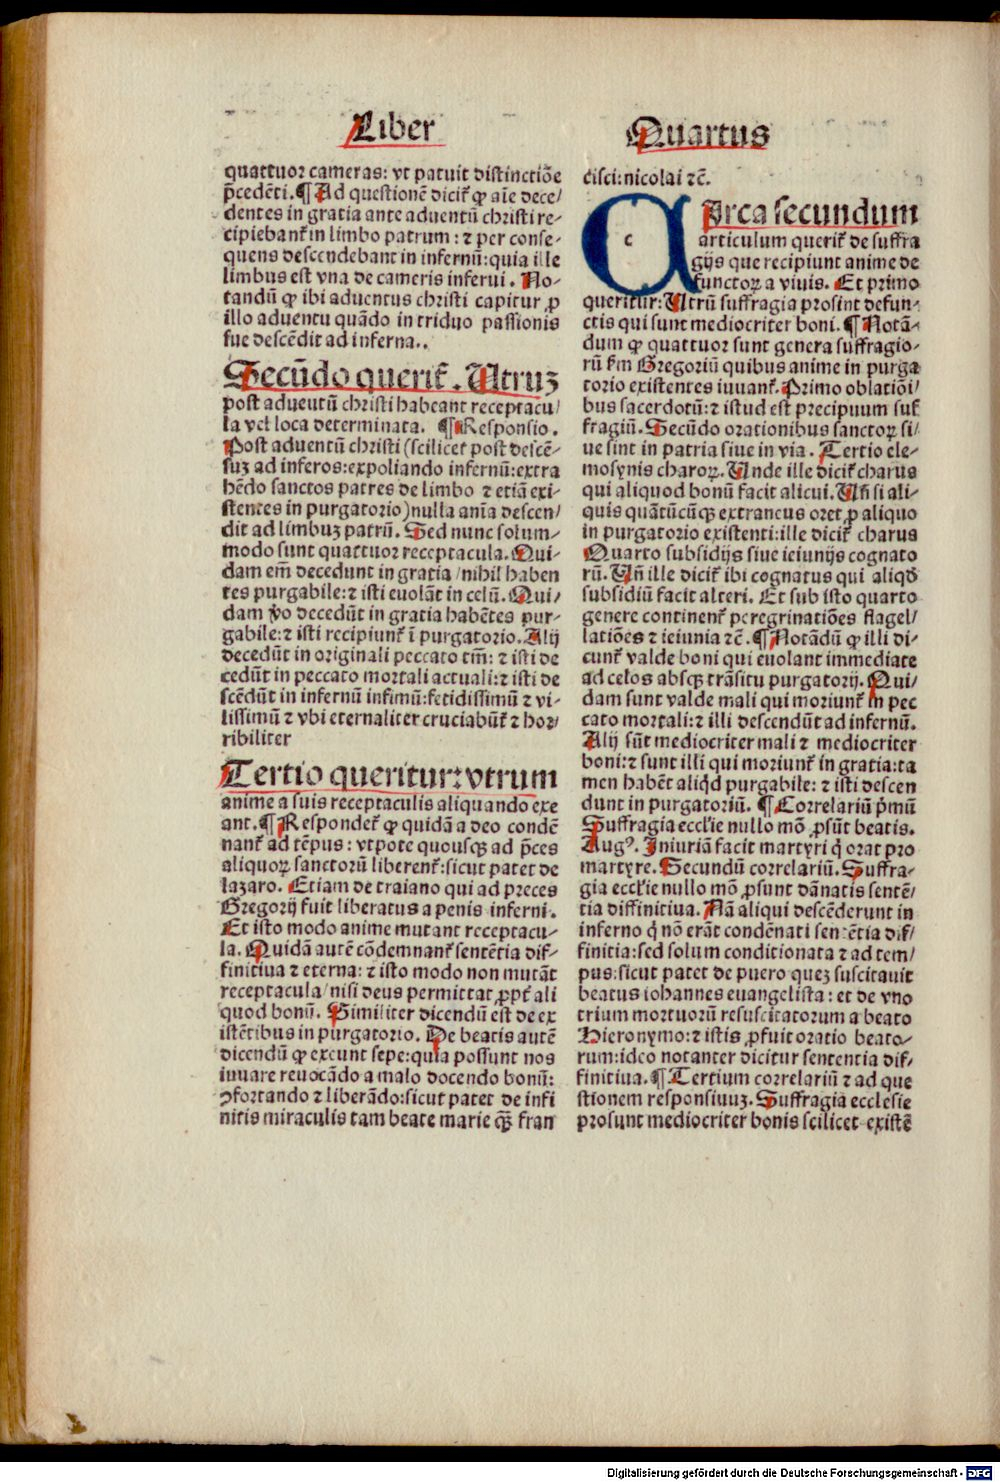 Liber
quattuor cameras: vt patuit distinctiōe
p̄cedēti. ¶ Ad questionē dicit᷑ ꝙ aīe dece/
dentes in gratia ante aduentū christi re-
cipiebant᷑ in limbo patrum: ⁊ per conse-
quens descendebant in infernū: quia ille
limbus est vna de cameris inferui. No-
tandū ꝙ ibi aduentus christi capitur ꝓ
illo aduentu quādo in triduo passionis
sue descēdit ad inferna..
Secūdo querit᷑. Utruꝫ
post adueutū christi habeant receptacu/
la vel loca determinata. ¶ Responsio.
Post aduentū christi (scilicet post descē-
suꝫ ad inferos: expoliando infernū: extra
hēdo sanctos patres de limbo ⁊ etiā exi-
stentes in purgatorio) nulla anīa descen/
dit ad limbuꝫ patrū. Sed nunc solum-
modo sunt quattuor receptacula. Qui-
dam em̄ decedunt in gratia / nihil haben
tes purgabile: ⁊ isti euolāt in celū. Qui/
dam v̄o decedūt in gratia habētes pur-
gabile: ⁊ isti recipiunt᷑ ī purgatorio. Alij
decedūt in originali peccato tm̄: ⁊ isti de
cedūt in peccato mortali actuali: ⁊ isti de
scēdūt in infernū infimū: fetidissimū ⁊ vi-
lissimū ⁊ vbi eternaliter cruciabūt᷑ ⁊ hor/
ribiliter
Tertio queritur: vtrum
anime a suis receptaculis aliquando exe
ant. ¶ Respondet᷑ ꝙ quidā a deo condē
nant᷑ ad tēpus: vtpote quousqꝫ ad p̄ces
aliquoꝝ sanctorū liberent᷑: sicut patet de
lazaro. Etiam de traiano qui ad preces
Gregorij fuit liberatus a penis inferni.
Et isto modo anime mutant receptacu-
la. Quidā autē cōdemnant᷑ sentētia dif-
finitiua ⁊ eterna: ⁊ isto modo non mutāt
receptacula / nisi deus permittat ꝓpt᷑ ali
quod bonū. Similiter dicendū est de ex
istētibus in purgatorio. De beatis autē
dicendū ꝙ exeunt sepe: quia possunt nos
iuuare reuocādo a malo docendo bonū:
ꝯfortando ⁊ liberādo: sicut patet de infi
nitis miraculis tam beate marie qꝫ̄ fran
Quartus
cisci: nicolai ⁊c̄.
c
Irca secundum
articulum querit᷑ de suffra
gijs que recipiunt anime de
functoꝝ a viuis. Et primo
queritur: Utrū suffragia prosint defun-
ctis qui sunt mediocriter boni. ¶ Notā-
dum ꝙ quattuor sunt genera suffragio-
rū ẜm Gregoriū quibus anime in purga
torio existentes iuuant᷑. Primo oblatiōi/
bus sacerdotū: ⁊ istud est precipuum suf
fragiū. Secūdo orationibus sanctoꝝ si/
ue sint in patria siue in via. Tertio ele-
mosynis charoꝝ. Unde ille dicit᷑ charus
qui aliquod bonū facit alicui. Un̄ si ali-
quis quātūcūqꝫ extraneus oret ꝓ aliquo
in purgatorio existenti: ille dicit᷑ charus
Quarto subsidijs siue ieiunijs cognato
rū. Un̄ ille dicit᷑ ibi cognatus qui aliqd̄
subsidiū facit alteri. Et sub isto quarto
genere continent᷑ peregrinatiōes flagel/
latiōes ⁊ ieiunia ⁊c̄. ¶ Notādū ꝙ illi di-
cunt᷑ valde boni qui euolant immediate
ad celos absqꝫ trāsitu purgatorij. Qui/
dam sunt valde mali qui moriunt᷑ in pec
cato mortali: ⁊ illi descendūt ad infernū.
Alij sūt mediocriter mali ⁊ mediocriter
boni: ⁊ sunt illi qui moriunt᷑ in gratia: ta
men habēt aliqd̄ purgabile: ⁊ isti descen
dunt in purgatoriū. ¶ Correlariū p̄mū
Suffragia eccl̄ie nullo mō ꝓsūt beatis.
Augꝰ. Iniuriā facit martyri q̄ orat pro
martyre. Secundū correlariū. Suffra-
gia eccl̄ie nullo mō ꝓsunt dānatis sentē/
tia diffinitiua. Nā aliqui descēderunt in
inferno q̄ nō erāt condēnati sentētia dif/
finitia: sed solum conditionata ⁊ ad tem/
pus: sicut patet de puero queꝫ suscitauit
beatus iohannes euangelista: et de vno
trium mortuorū resuscitatorum a beato
Hieronymo: ⁊ istis ꝓfuit oratio beato-
rum: ideo notanter dicitur sententia dif-
finitiua. ¶ Tertium correlariū ⁊ ad que
stionem responsiuuꝫ. Suffragia ecclesie
prosunt mediocriter bonis scilicet existē
Digitalisierung gefördert durch die Deutsche Forschungsgemeinschaft - DFG